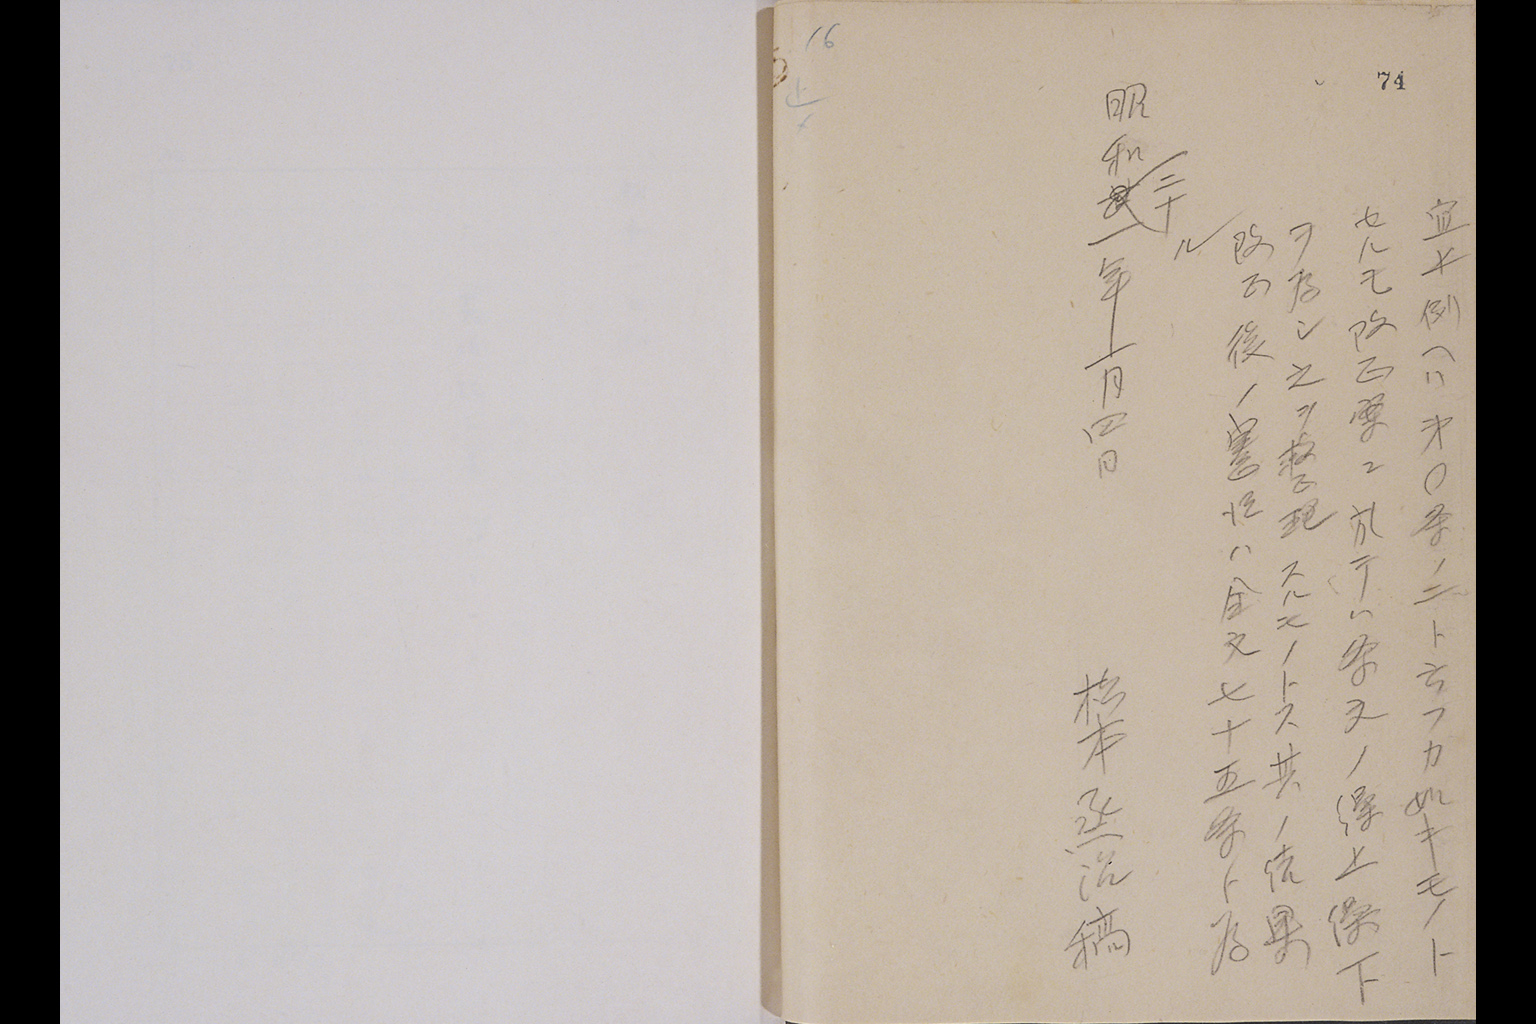 74
16
宜上例ヘハ第〇条ノ二ト云フカ如キモノト
セルモ改正案ニ於テハ条文ノ繰上繰下
ヲ為シ之ヲ整理スルモノトス其ノ結果
改正後ノ憲法ハ全文七十五条ト為
ル
二十
昭和一年一月四日
松本烝治稿